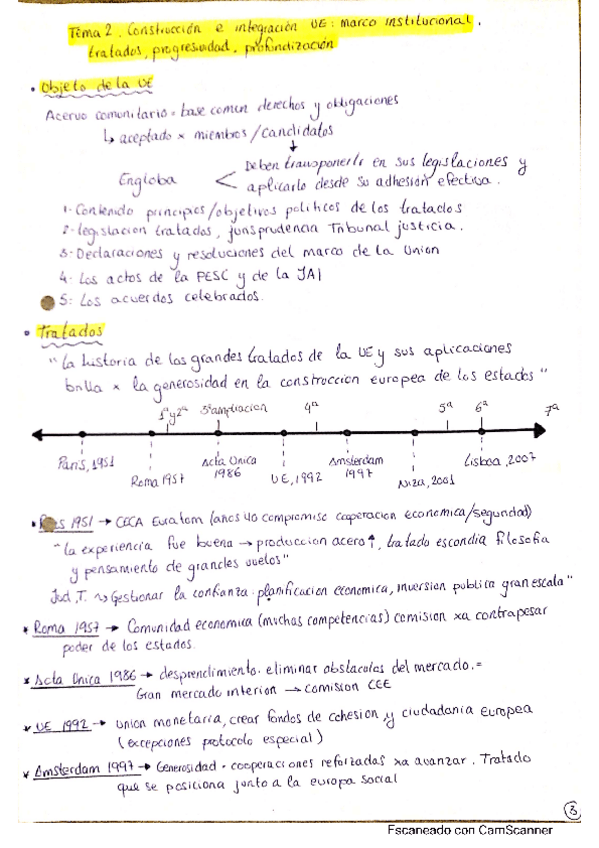 Tema 2. Construcción e integración UE: marco institucional,
tratados, progresividad, profundización
• Objeto de la UE
Acervo comunitario = base comun derechos y obligaciones
↳ aceptado x miembros/candidatos
↓
Engloba < Deben transponerlo en sus legislaciones y
aplicarlo desde su adhesión efectiva.
1- Contenido principios/objetivos politicos de los tratados
2- legislacion tratados, jurisprudencia Tribunal justicia.
3- Declaraciones y resoluciones del marco de la Union
4- Los actos de la PESC y de la JAI
5: Los acuerdos celebrados.
• Tratados
"la historia de los grandes tratados de la UE y sus aplicaciones
brilla x la generosidad en la construccion europea de los estados"
1ª y 2ª 3ª ampliacion 4ª 5ª 6ª 7ª
Paris, 1951 Roma 1957 Acta Unica 1986 UE, 1992 Amsterdam 1997 Niza, 2001 Lisboa, 2007
1951 → CECA Euratom (años 40 compromiso cooperacion economica/seguridad)
"la experiencia fue buena → produccion acero↑, tratado escondia filosofia
y pensamiento de grandes vuelos"
Jud, T. ↝ Gestionar la confianza. planificacion economica, inversion publica gran escala"
* Roma 1957 → Comunidad economica (muchas competencias) comision xa contrapesar
poder de los estados.
* Acta Unica 1986 → desprendimiento. eliminar obstaculos del mercado. =
Gran mercado interion → comision CEE
* UE 1992 → union monetaria, crear fondos de cohesion y ciudadania Europea
(excepciones protocolo especial)
* Amsterdam 1997 → Generosidad. cooperaciones reforzadas xa avanzar. Tratado
que se posiciona junto a la europa social
3
Escaneado con CamScanner